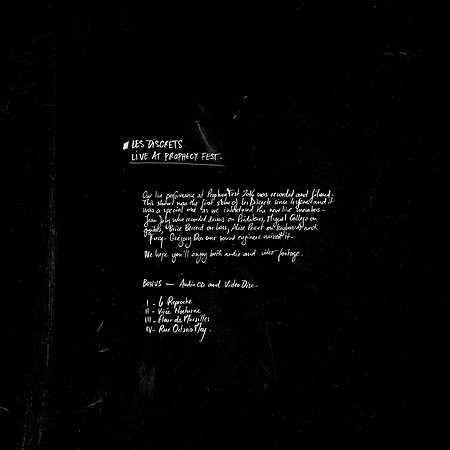 LES DISCRETS
LIVE AT PROPHECY FEST.
Our live performance at Prophecy Fest 2016 was recorded and filmed.
This show was the first show of Les Discrets since and it
was a special one as we introduced the new live members -
Jean who recorded drums on Prédateurs, Miguel Callejo on
guitars, Brice Berrerd on bass, Alice Perret on keyboards and
Fange. Grégory our sound engineer mixed it.
We hope you'll enjoy both audio and video footage.
BONUS — Audio CD and Video Disc.
I - Le Reproche
II - Virée Nocturne
III - Fleur de Murailles
IV - Rue Octavio Mey